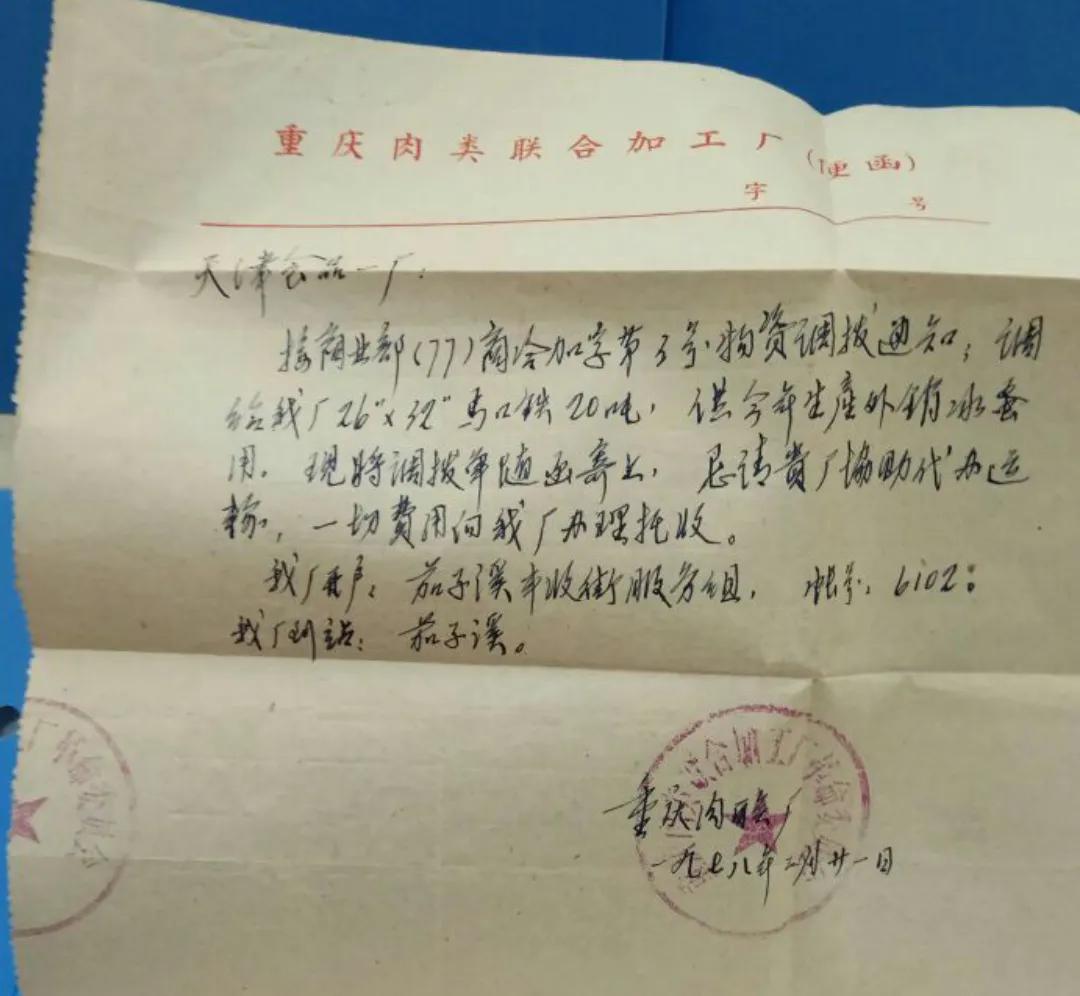 重庆肉类联合加工厂(便函)
字 号
天津食品一厂:
接商业部(77)商冷加字第3号物资调拨通知,调
给我厂26"×32"马口铁20吨,供今年生産外销冰蛋
用。现将调拨单随函寄上,恳请貴厂協助代办运
输,一切費用向我厂办理托收。
我厂开户:茄子溪丰收街服务组,帐号:6102;
我厂到站:茄子溪。
联合加工厂革命委员会
厂革命委员会
重庆肉联厂
一九七八年二月廿一日